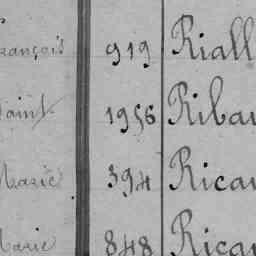 François 919 Riall
Saint 1956 Ribau
Marie 394 Ricau
Marie 848 Ricau